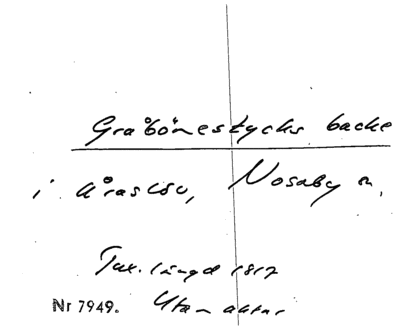 Gråbönestycks backe
i Åraslöv, Nosaby sn,
Tax. längd 1812
Nr 7949. Utan aktnr